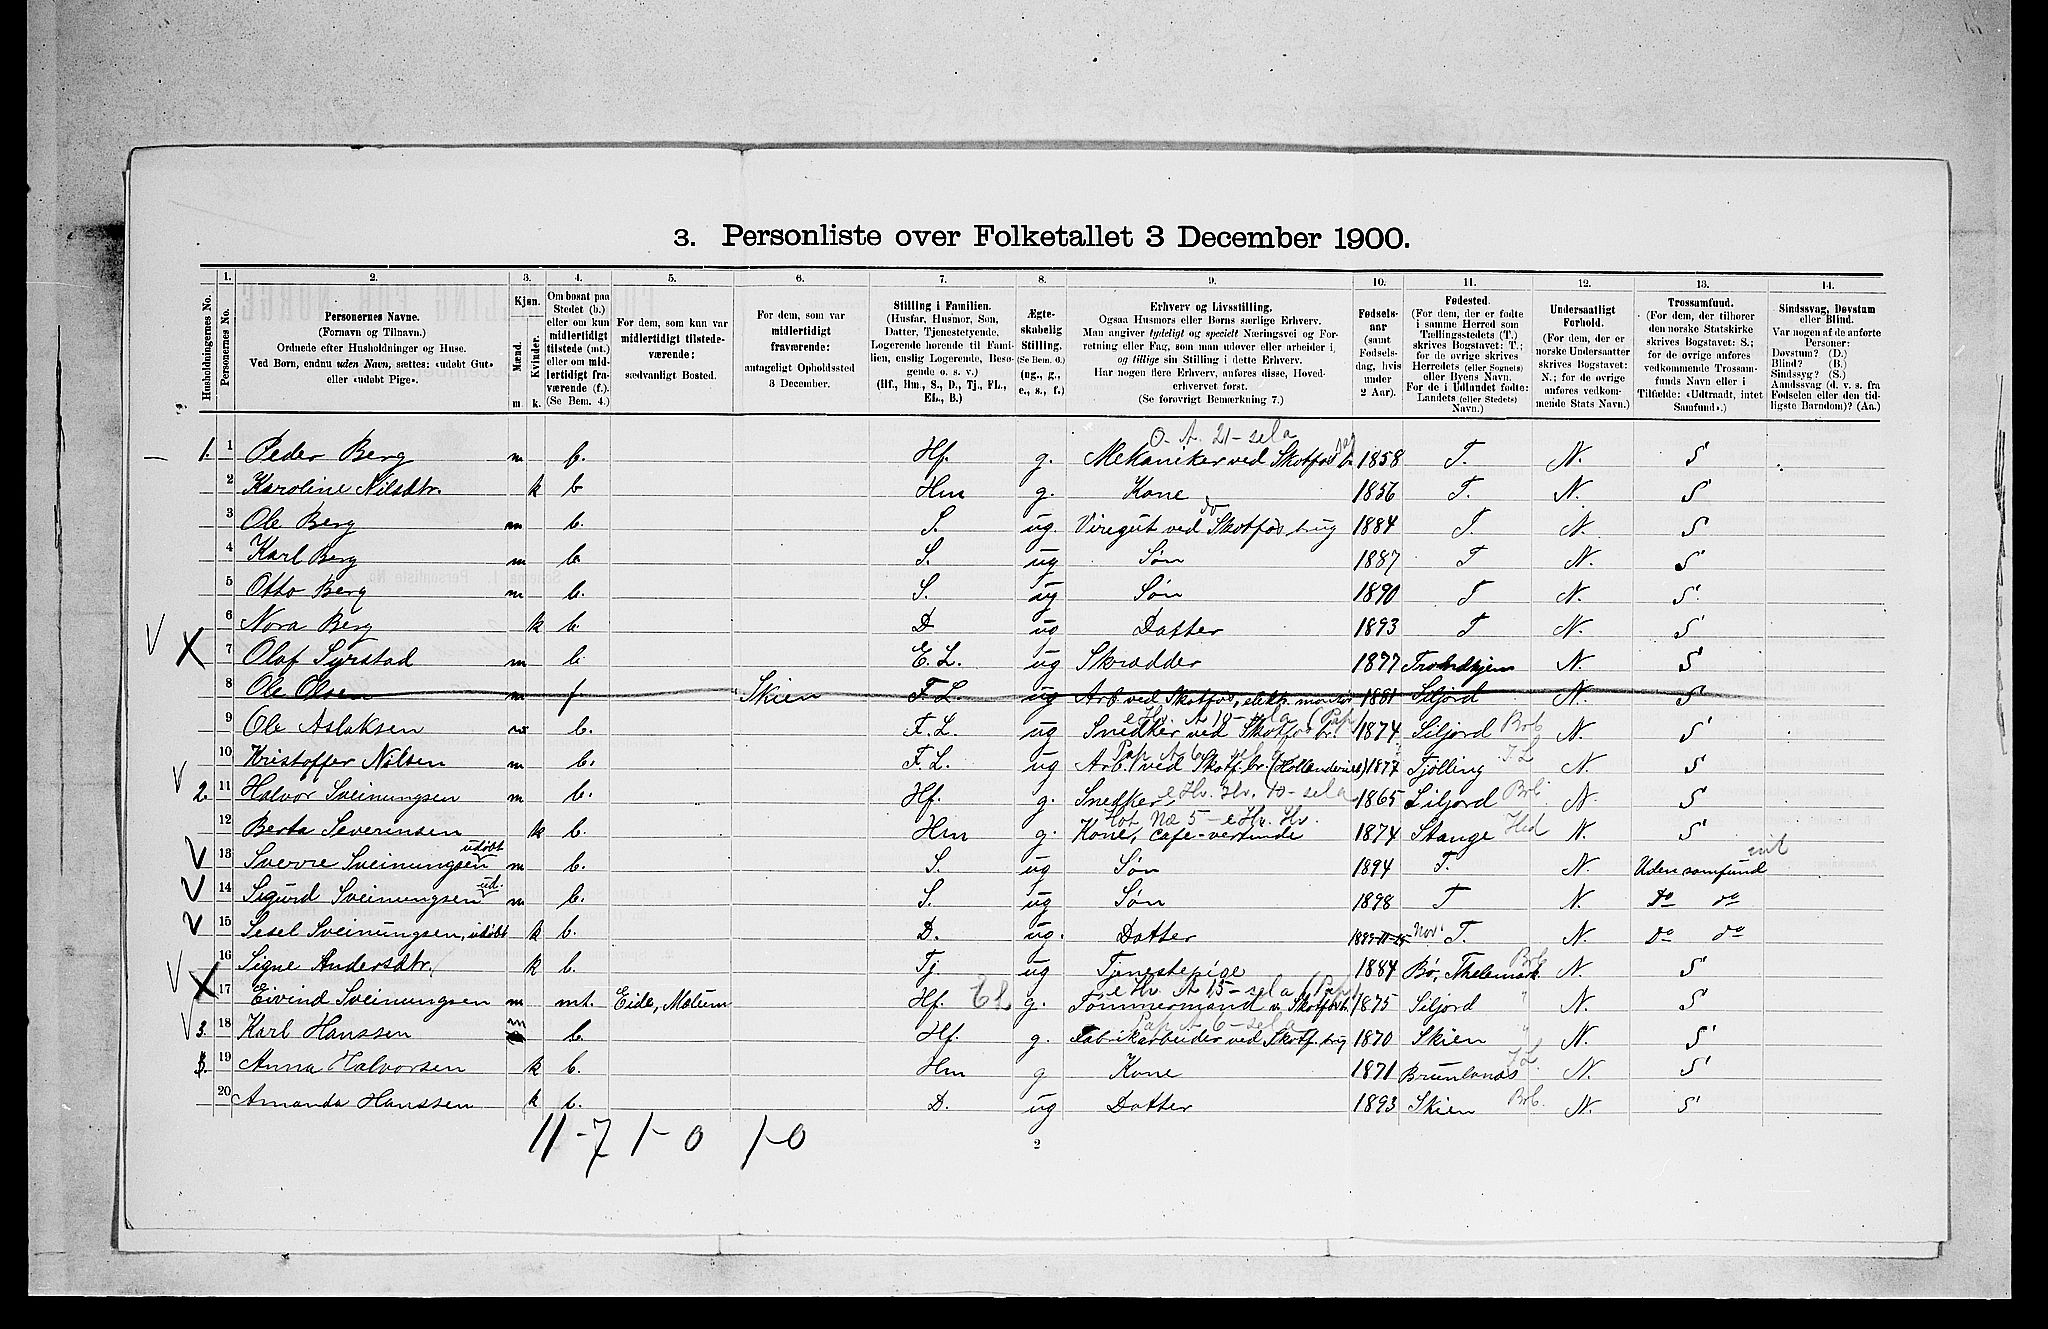 3. Personliste over Folketallet 3 December 1900.
Husholdningernes No.
1. Personernes No.
2. Personernes Navne. (Fornavn og Tilnavn.) Ordnede efter Husholdninger og Huse. Ved Børn, endnu uden Navn, sættes: «udøbt Gut» eller «udøbt Pige».
3. Kjøn. Mænd. m. Kvinder. k.
4. Om bosat paa Stedet (b.) eller om kun midlertidigt tilstede (mt.) eller om midlertidigt fraværende (f.). (Se Bem. 4.)
5. For dem, som kun var midlertidigt tilstedeværende: sædvanligt Bosted.
6. For dem, som var midlertidigt fraværende: antageligt Opholdssted 3 December.
7. Stilling i Familien. (Husfar, Husmor, Søn, Datter, Tjenestetyende, Logerende hørende til Familien, enslig Logerende, Besøgende o. s. v.) (Hf., Hm., S., D., Tj., FL., EL., B.)
8. Ægteskabelig Stilling. (Se Bem. 6.) (ug., g., e., s., f.)
9. Erhverv og Livsstilling. Ogsaa Husmors eller Børns særlige Erhverv. Man angiver tydeligt og specielt Næringsvei og Forretning eller Fag, som man udøver eller arbeider i, og tillige sin Stilling i dette Erhverv. Har nogen flere Erhverv, anføres disse, Hovederhvervet først. (Se forøvrigt Bemærkning 7.)
10. Fødselsaar (samt Fødselsdag, hvis under 2 Aar).
11. Fødested. (For dem, der er fødte i samme Herred som Tællingsstedets (T.) skrives Bogstavet: T.; for de øvrige skrives Herredets (eller Sognets) eller Byens Navn. For de i Udlandet fødte: Landets (eller Stedets) Navn.)
12. Undersaatligt Forhold. (For dem, der er norske Undersaatter skrives Bogstavet: N.; for de øvrige anføres vedkommende Stats Navn.)
13. Trossamfund. (For dem, der tilhører den norske Statskirke skrives Bogstavet: S.; for de øvrige anføres vedkommende Trossamfunds Navn eller i Tilfælde: «Udtraadt, intet Samfund».)
14. Sindssvag, Døvstum eller Blind. Var nogen af de anførte Personer: Døvstum? (D.) Blind? (B.) Sindssyg? (S.) Aandssvag (d. v. s. fra Fødselen eller den tidligste Barndom)? (Aa.)
1. 1 Peder Berg m b. Hf. g. Mekaniker ved Skotfos b. 1858 T. N. S
2 Karoline Nilsdtr. k b Hm g. Kone 1856 T. N. S
3 Ole Berg m b. S. ug. Viregut ved Skotfos brug 1884 T. N. S
4 Karl Berg m b. S. ug Søn 1887 T N. S
5 Otto Berg m b. S. ug Søn 1890 T N. S.
6 Nora Berg k b. D ug Datter 1893 T N. S
V X 7 Olaf Syrstad m b E. L. ug Skrædder 1877 Trondhjem N. S
8 Ole Olsen m f Skien F. L. ug Arb ved Skotfos, elektr. montør 1881 Siljord N. S
9 Ole Aslaksen m b. F. L. ug Snedker ved Skotfos br. 1874 Siljord Brb N. S
10 Kristoffer Nilsen m b. F. L. ug Arb. ved Skotf. br. (Hollenderiet) 1877 Tjølling J L N. S
V 2. 11 Halvor Sveinungsen m b. Hf. g. Snedker 1865 Siljord Brb. N. S
12 Berta Severinsen k b. Hm g. Kone, cafe-vertinde 1874 Stange Hed N. S
V 13 Sverre Sveinungsen udøbt m b. S. ug Søn 1894 T. N. Uden samfund
V 14 Sigurd Sveinungsen ud. m b. S. ug Søn 1898 T N. do do
V 15 Sesel Sveinungsen, udøbt k b. D. ug. Datter Nov. T. N. do do
16 Signe Andersdtr. k b. Tj. ug Tjenestepige 1884 Bø, Thelemark Brb N. S
V X 17 Eivind Sveinungsen m mt. Eide, Melum Hf. EL g. Tømmermand v. Skotfos b. 1875 Siljord " N. S
V 3. 18 Karl Hanssen m b. Hf. g. Fabrikarbeider ved Skotf. brug 1870 Skien " N. S
19 Anna Halvorsen k b. Hm g Kone 1871 Brunlanæs J L N. S
20 Amanda Hanssen k b. D. ug Datter 1893 Skien Brb. N. S
11-7 1-0 1-0
2